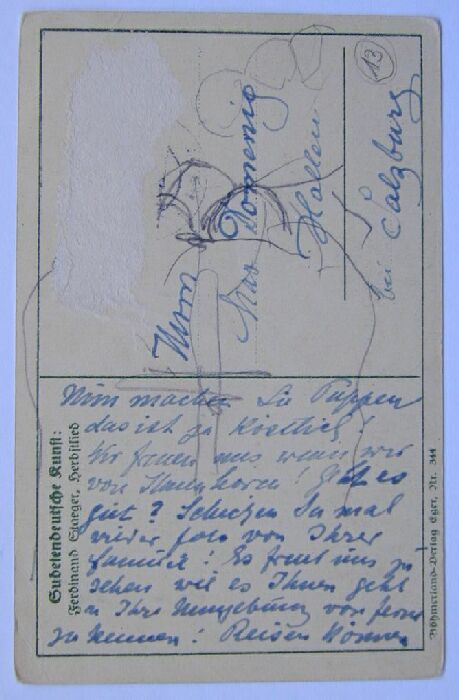 Sudetendeutsche Kunst:
Ferdinand Staeger, Herbstlied
Nun machen Sie Puppen
das ist ja köstlich!
Wir freuen uns wenn wir
von Ihnen hören! Geht es
gut? Schicken Sie mal
wieder foto von Ihrer
Familie! Es freut uns zu
sehen wie es Ihnen geht
u Ihre Umgebung von ferne
zu kennen! Reisen können
13
Herrn
Max Domenig
Hallein
bei Salzburg
Böhmerland-Verlag Eger, Nr. 344